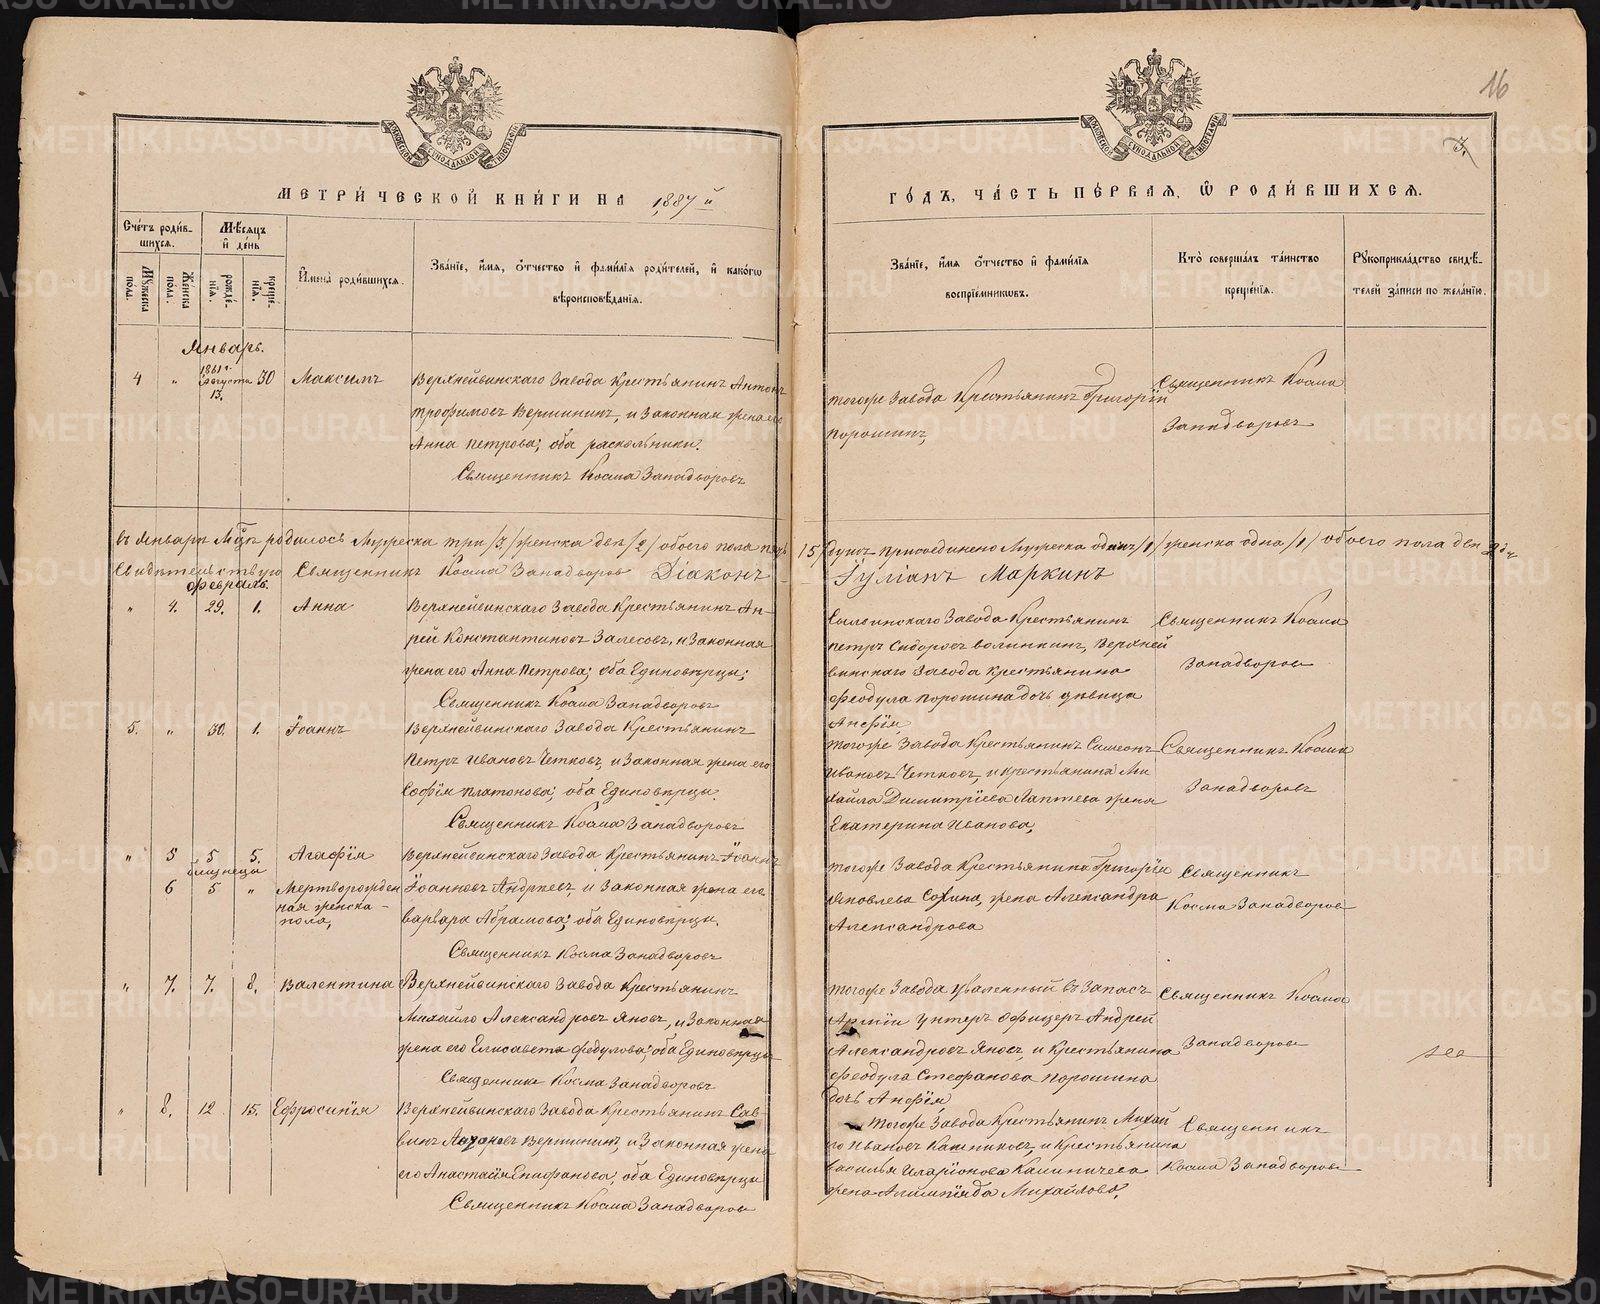 16
3.
МОСКОВСКОЙ СѴНОДАЛЬНОЙ ТИПОГРАФІИ
МОСКОВСКОЙ СѴНОДАЛЬНОЙ ТИПОГРАФІИ
МЕТРИ́ЧЕСКОЙ КНИ́ГИ НА 1887й
ГО́ДЪ, ЧА́СТЬ ПЕ́РВАЯ, Ѡ РОДИ́ВШИХСЯ.
Сче́тъ роди́в-
шихся.
Мужеска пола.
Же́нска пола.
Мѣ́сяцъ
и де́нь
рожде́-
нія.
креще́-
нія.
Имена̀ роди́вшихся.
Зва́ніе, имя, о́тчество и фами́лія роди́телей, и како́гѡ
вѣроисповѣ́данія.
Зва́ніе, имя о́тчество и фами́лія
воспріе́мникѡвъ.
Кто̀ соверша́лъ та́инство
креще́нія.
Рукоприкла́дство свидѣ́-
телей за́писи по жела́нію.
Январь.
4 „ 1861 г. Августа 13. 30 Максимъ
Верхнейвинскаго Завода Крестьянинъ Антонъ
Трофимовъ Вершининъ, и Законная жена его
Анна Петрова; оба раскольники.
Священникъ Косма Западворовъ
тогоже Завода Крестьянинъ Григорій
Порошинъ,
Священникъ Косма
Западворовъ
въ Январѣ Мцѣ родилось Мужеска три /3/ женска двѣ /2/ обоего пола пять
/5/ душъ присоединено Мужеска одинъ /1/ женска одна /1/ обоего пола двѣ
Свидѣтельствую Священникъ Косма Западворов Діаконъ
Іуліанъ Маркинъ
Февраль.
„ 4. 29. 1. Анна
Верхнейвинскаго Завода Крестьянинъ Ан-
рей Константиновъ Залесовъ, и Законная
жена его Анна Петрова; оба Единовѣрцы;
Священникъ Косма Западворовъ
Завода Крестьянинъ
Петръ Сидоровъ Волынкинъ, Верхней
винскаго Завода Крестьянина
Феодула Порошина дочь дѣвица
Анфія
Священникъ Косма
Западворовъ
5. „ 30. 1. Іоаннъ
Верхнейвинскаго Завода Крестьянинъ
Петръ Ивановъ Четковъ, и Законная жена его
Софія Платонова; оба Единовѣрцы.
Священникъ Косма Западворовъ
тогоже Завода Крестьянинъ Симеонъ
Ивановъ Четковъ, и крестьянина Ми
хайла Димитріева Лаптева жена
Екатерина Иванова,
Священникъ Косма
Западворовъ
„ 5 5 5. Агафія
близнецы
6 5 „ Мертворожден
ная женска-
пола,
Верхнейвинскаго Завода Крестьянинъ Іоаннъ
Іоанновъ Андреевъ, и Законная жена его
Варвара Абрамова; оба Единовѣрцы.
Священникъ Косма Западворовъ
тогоже Завода Крестьянина Григорія
Яковлева Сохина, жена Александра
Александрова
Священникъ
Косма Западворовъ
„ 7. 7. 8. Валентина
Верхнейвинскаго Завода Крестьянинъ
Михайло Александровъ Яновъ, и Законная
жена его Елисавета Федулова; оба Единовѣрцы
Священникъ Косма Западворовъ
тогоже Завода Уваленный въ Запасъ
Арміи Унтеръ Офицеръ Андрей
Александровъ Яновъ, и Крестьянина
Феодула Стефанова Порошина
дочь Анфія
Священникъ Косма
Западворовъ
„ 8. 12 15. Ефросинія
Верхнейвинскаго Завода Крестьянинъ Сав-
винъ Вершининъ, и Законная жена
его Анастасія Епифанова, оба Единовѣрцы
Священникъ Косма Западворовъ
тогоже Завода Крестьянинъ Михай
ло Ивановъ Калениковъ, и Крестьянина
Василья Иларіонова Калиничева
жена Алимпіада Михайлова,
Священникъ
Косма Западворовъ